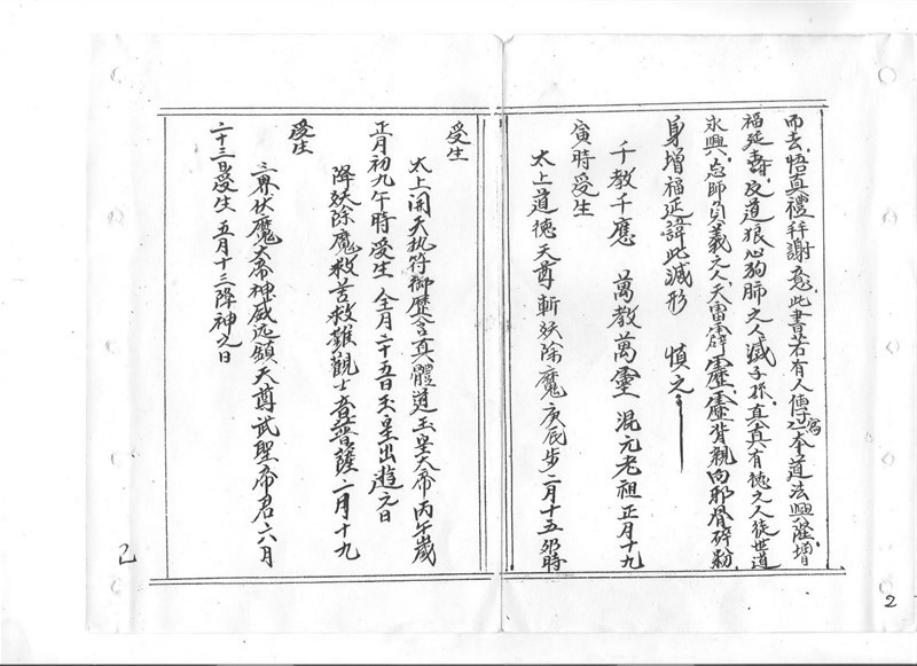 而去悟真禮拜謝意此書若有人傳寫之本道法興隆增
福延壽友道狼心狗肺之人滅子孫真真有德之人徒世道
永興忘師負義之人天雷霹靂靂背親向邪骨碎粉
身增福延譯此滅形 慎之
千教千應 萬教萬靈 混元老祖正月十九
寅時受生
太上道德天尊斬妖除魔庚辰步二月十五卯時
受生
太上開天执符御歷含真體道玉皇大帝丙午歲
正月初九午時受生 仝月二十五日玉皇出遊之日
降妖除魔救苦救難觀士音菩薩二月十九
受生
三界伏魔大帝神威远鎮天尊武聖帝君六月
二十三日受生 五月十三降神之日
乙
2